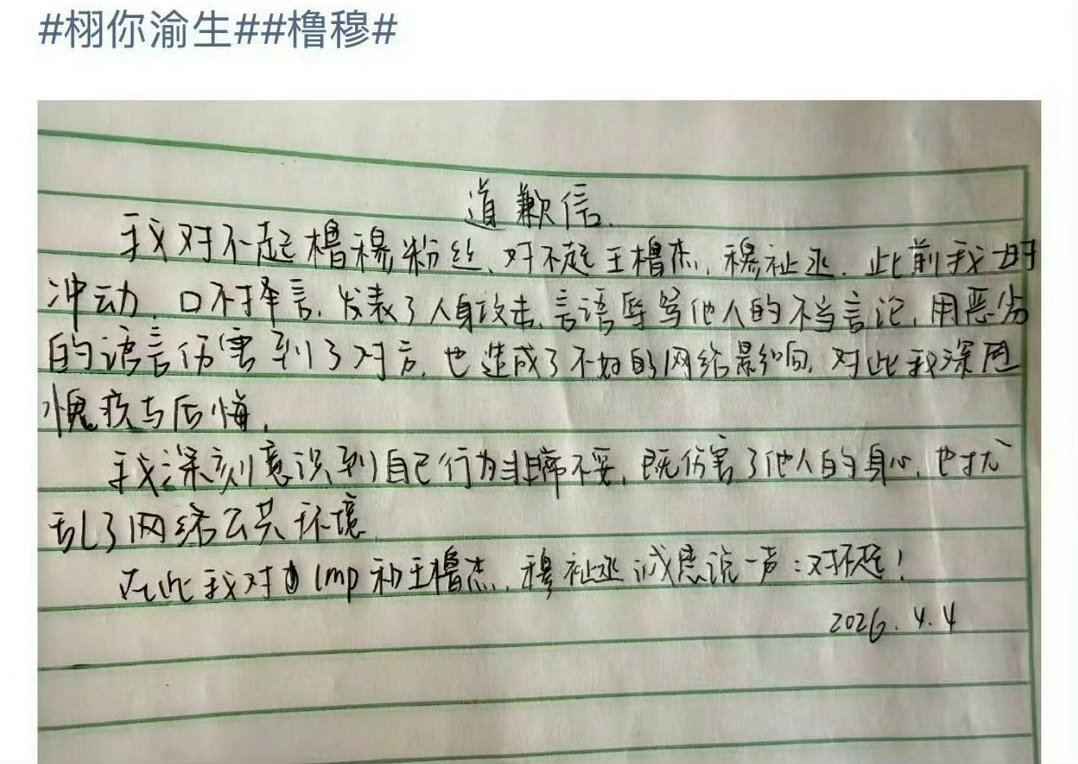 #栩你渝生##橹穆#
道歉信.
我对不起橹穆粉丝、对不起王橹杰，穆祉丞. 此前我一时
冲动，口不择言，发表了人身攻击、言语辱骂他人的不当言论，用恶劣
的语言伤害到了对方，也造成了不好的网络影响，对此我深感
愧疚与后悔，
我深刻意识到自己行为非常不妥，既伤害了他人的身心，也扰
乱了网络公共环境
在此我对 lmp 和王橹杰，穆祉丞诚恳说一声：对不起！
2026.4.4